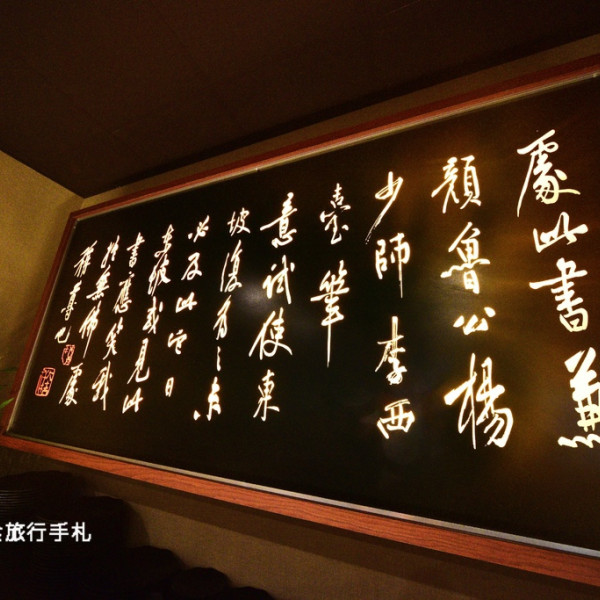 處此書兼
顏魯公楊
少師李西
臺筆
意試使東
坡復為之未
必及此它日
東坡或見此
書應笑我
於無佛處
稱尊也
旅行手札